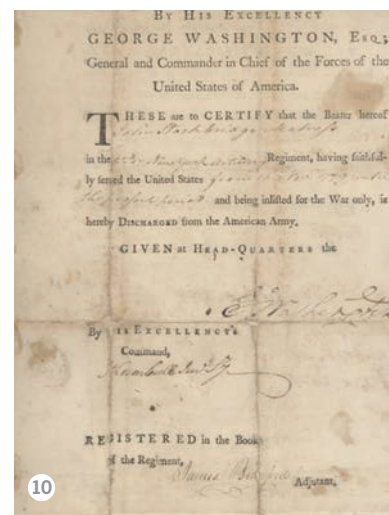 BY HIS EXCELLENCY
GEORGE WASHINGTON, ESQ;
General and Commander in Chief of the Forces of the
United States of America.
THESE are to CERTIFY that the Bearer hereof
John Stockbridge Matross
in the Regiment, having faithful-
ly served the United States from
the present and being inlisted for the War only, is
hereby DISCHARGED from the American Army.
GIVEN at HEAD-QUARTERS the
G Washington
By HIS EXCELLENCY'S
Command,
J Trumbull Jun Sy
REGISTERED in the Books
of the Regiment,
James Adjutant,
10